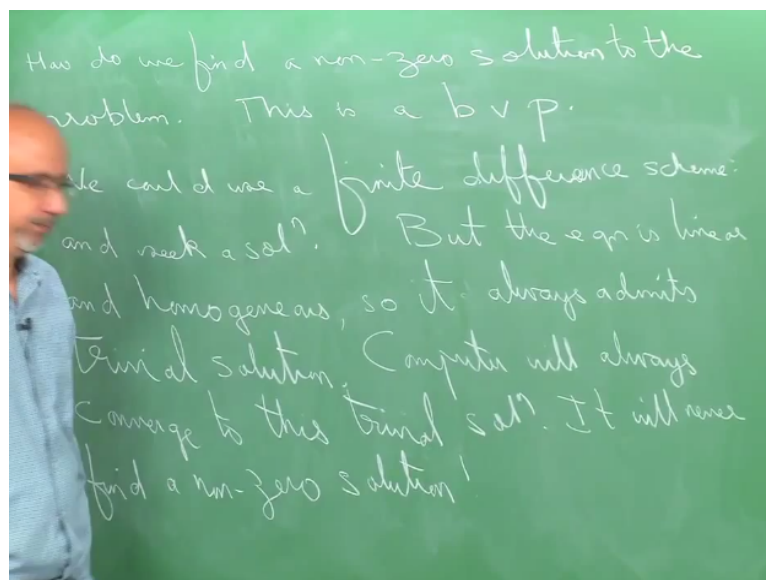 How do we find a non-zero solution to the
problem. This is a b v p.
We could use a finite difference scheme.
and seek a solⁿ. But the eqn is linear
and homogeneous, so it always admits
trivial solution. Computer will always
converge to this trivial solⁿ. It will never
find a non-zero solution!